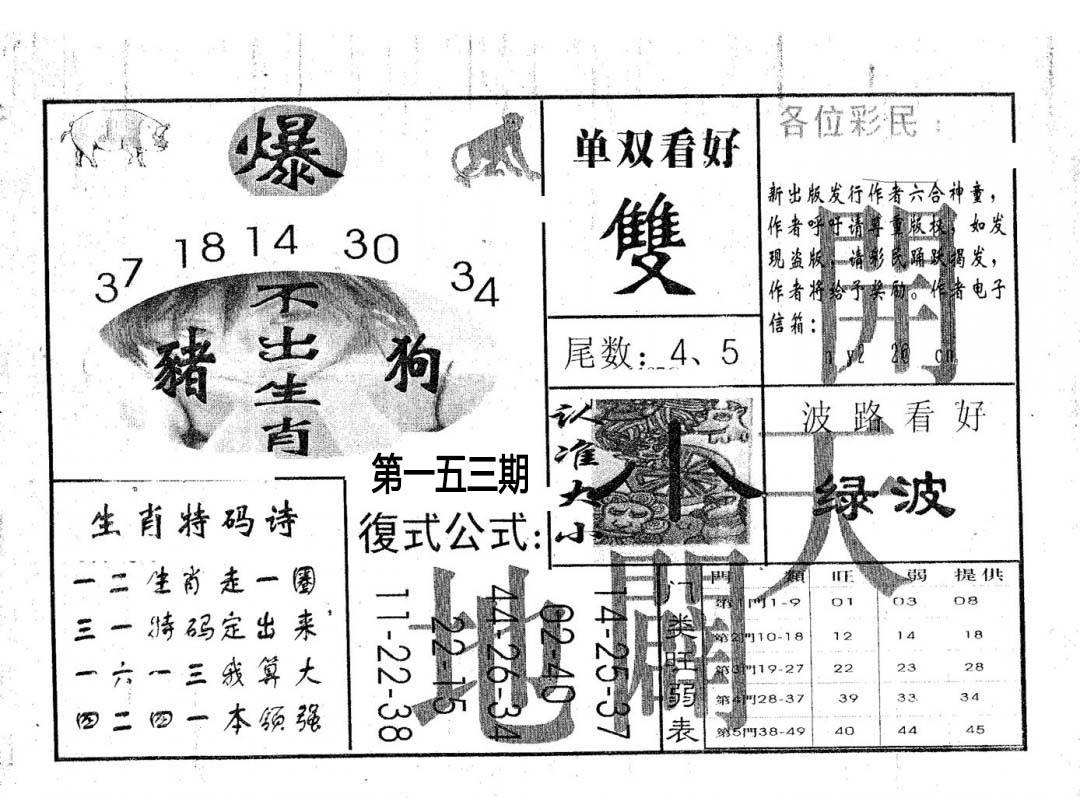 爆
37 18 14 30 34
不出生肖
豬
狗
单双看好
雙
尾数：4、5
各位彩民：
新出版发行作者六合神童，
作者呼吁请尊重版权，如发
现盗版，请彩民踊跃揭发，
作者将给予奖励。作者电子
信箱：
開
天
闢
地
认准大小
小
波路看好
绿波
第一五三期
復式公式：
11-22-38
22-15
44-26-34
02-40
14-25-37
生肖特码诗
一二生肖走一圈
三一特码定出来
一六一三我算大
四二四一本领强
门类旺弱表
門類 旺 弱 提供
第1門1-9 01 03 08
第2門10-18 12 14 18
第3門19-27 22 23 28
第4門28-37 39 33 34
第5門38-49 40 44 45